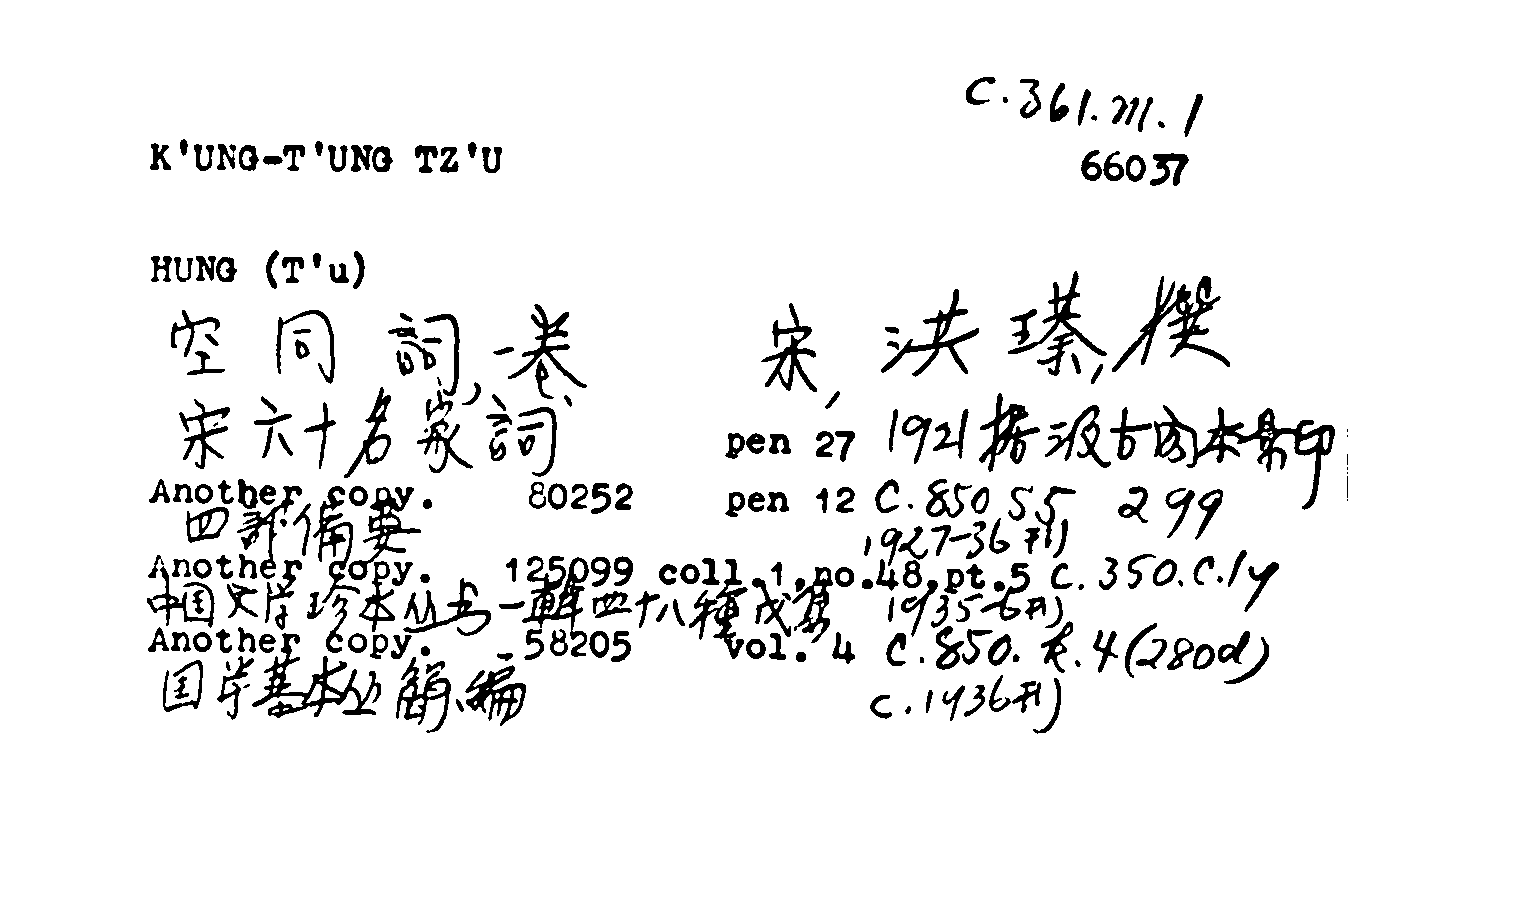 C.361.m.1
K'UNG-T'UNG TZ'U 66037
HUNG (T'u)
空同詞,一卷 宋,洪瑹,撰
宋六十名家詞 pen 27 1921据汲古阁本景印
Another copy. 80252 pen 12 C.850 S5 299
四部備要 1927-36刊
Another copy. 125099 coll.1,no.48,pt.5 C.350.C.14
中国文学珍本丛书一輯四十八種戊集 1935-6刊
Another copy. 58205 vol. 4 C.850.k.4(280d)
国学基本丛簡編 c.1936刊